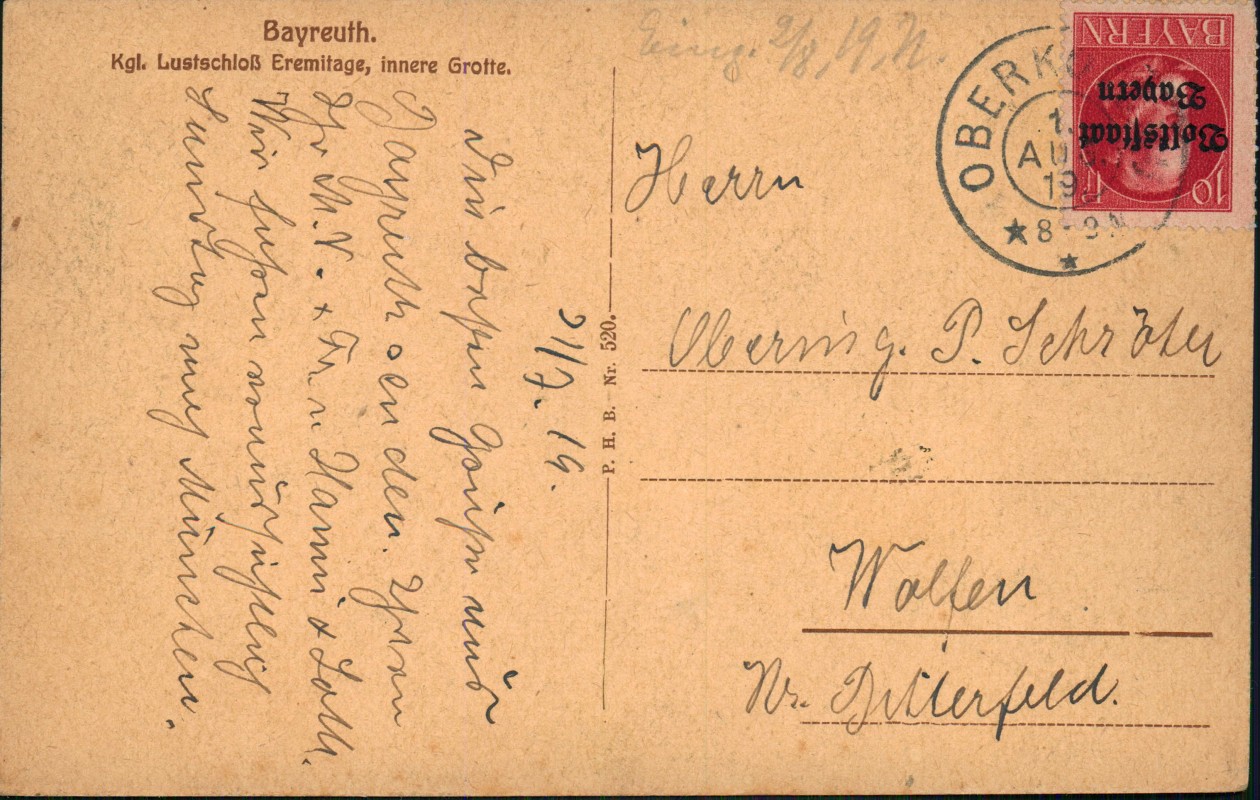 Bayreuth.
Kgl. Lustschloß Eremitage, innere Grotte.
Eing. 2/8. 19. N.
OBERKO
1.
AUG.
19
8-9N
BAYERN
Volksstaat
Bayern
10 Pf
31/7. 19.
Die besten Grüße aus
Bayreuth senden Ihnen
Ihr M. V. + Fr. u. Hanni + Lotti.
Wir fahren voraussichtlich
Sonntag nach München.
P. H. B. Nr. 520.
Herrn
Obering. P. Schröter
Wolfen
Kr. Bitterfeld.